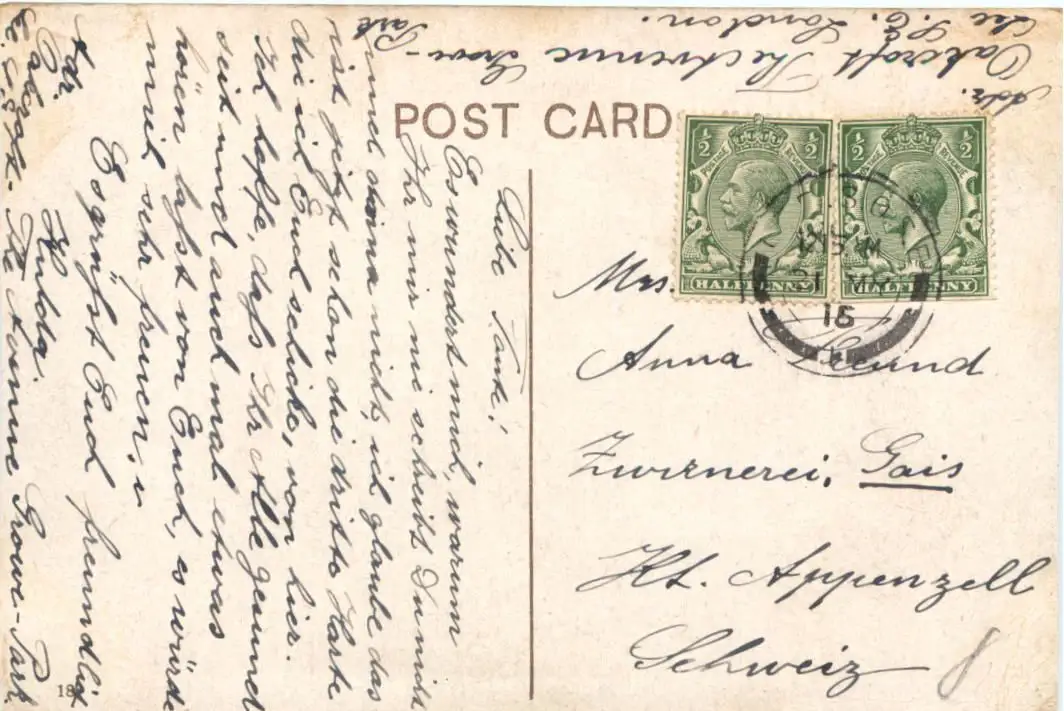 POST CARD
Liebe Tante!
Es wundert mich, warum
Ihr mir nie schreibt. Du nicht
und Anna nicht, ich glaube das
ist jetzt schon die dritte Karte
die ich Euch schicke, von hier.
Ich hoffe, dass Ihr Alle gesund
seit und auch mal etwas
hören lasst von Euch, es würde
mich sehr freuen. u
Es grüsst Euch freundlich
Hulda.
Adr.
The Avenue Grove-Park
Adr.
Oakcroft The Avenue Grove-
Park
Lee S.E. London.
½ ½
POSTAGE REVENUE
HALFPENNY
½ ½
POSTAGE REVENUE
HALFPENNY
15
Mrs.
Anna
Zwirnerei, Gais
Kt. Appenzell
Schweiz
8
18